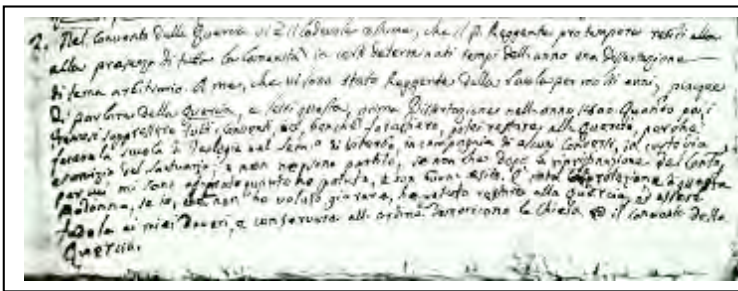 2. Nel Convento della Quercia vi è il lodevole costume, che il P. Reggente pro tempore reciti alla
alla presenza di tutta la Comunità in certi determinati tempi dell'anno una Dissertazione
di tema arbitrario. A me, che vi sono stato Reggente dello Studio per molti anni, piacque
di parlare della Quercia, e feci questa prima Dissertazione nell'anno 1800. Quando poi i
francesi soppressero tutti i Conventi, io, benchè forastiero, potei restare alla Quercia, perchè
facevo la scuola di Teologia nel Sem. di Viterbo, in compagnia di alcuni Conversi, in custodia
e servizio del Santuario; e non ne sono partito, se non che dopo la ripristinazione del Conto,
per cui mi sono adoperato quanto ho potuto, e con buon esito. È stata protezione di questa
Madonna, se io, che non ho voluto giurare, ho potuto restare alla Quercia, ed essere
fedele ai miei doveri, e conservare all'ordine domenicano la Chiesa, ed il convento della
Quercia.